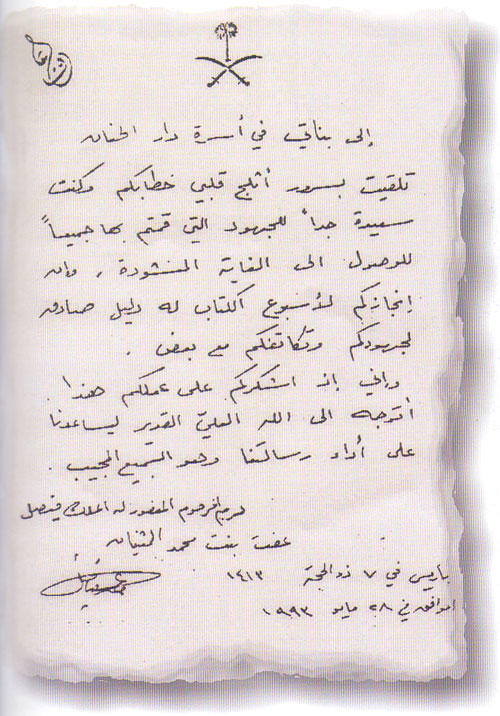 إلى بناتي في أسرة دار الحنان
تلقيت بسرور أثلج قلبي خطابكم وكنت
سعيدة جداً للجهود التي قمتم بها جميعاً
للوصول الى الغاية المنشودة ، وان
إنجازكم لأسبوع الكتاب له دليل صادق
لجهودكم وتكاتفكم مع بعض .
وإني إذ اشكركم على عملكم هذا
أتوجه الى الله العليّ القدير ليساعدنا
على أداء رسالتنا وهو السميع المجيب .
حرم المرحوم المغفور له الملك فيصل
عفت بنت محمد الثنيان
باريس في ٧ ذو الحجة ١٤١٣
الموافق في ٢٨ مايو ١٩٩٣